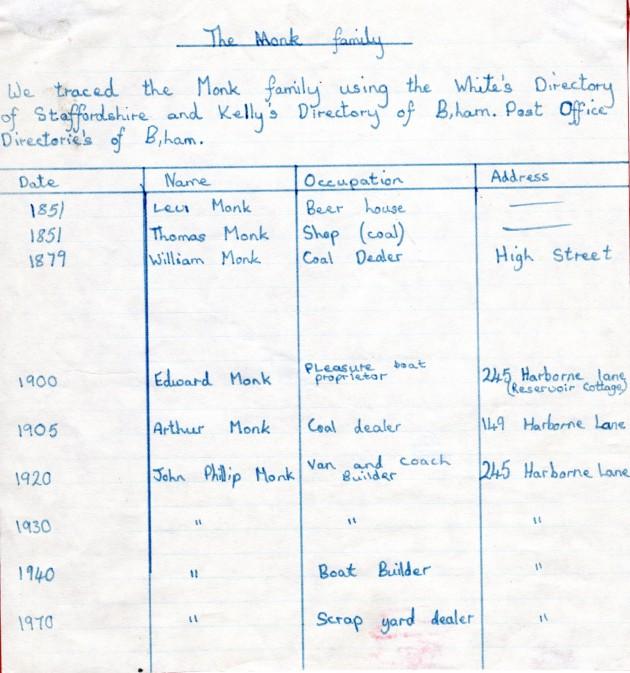 The Monk family
We traced the Monk family using the White's Directory
of Staffordshire and Kelly's Directory of B,ham. Post Office
Directorie's of B,ham.
Date Name Occupation Address
1851 Levi Monk Beer house —
1851 Thomas Monk Shop (coal) —
1879 William Monk Coal Dealer High Street
1900 Edward Monk Pleasure boat proprietor 245 Harborne lane (Reservoir Cottage)
1905 Arthur Monk Coal dealer 149 Harborne Lane
1920 John Phillip Monk Van and coach Builder 245 Harborne Lane
1930 " " "
1940 " Boat Builder "
1970 " Scrap yard dealer "